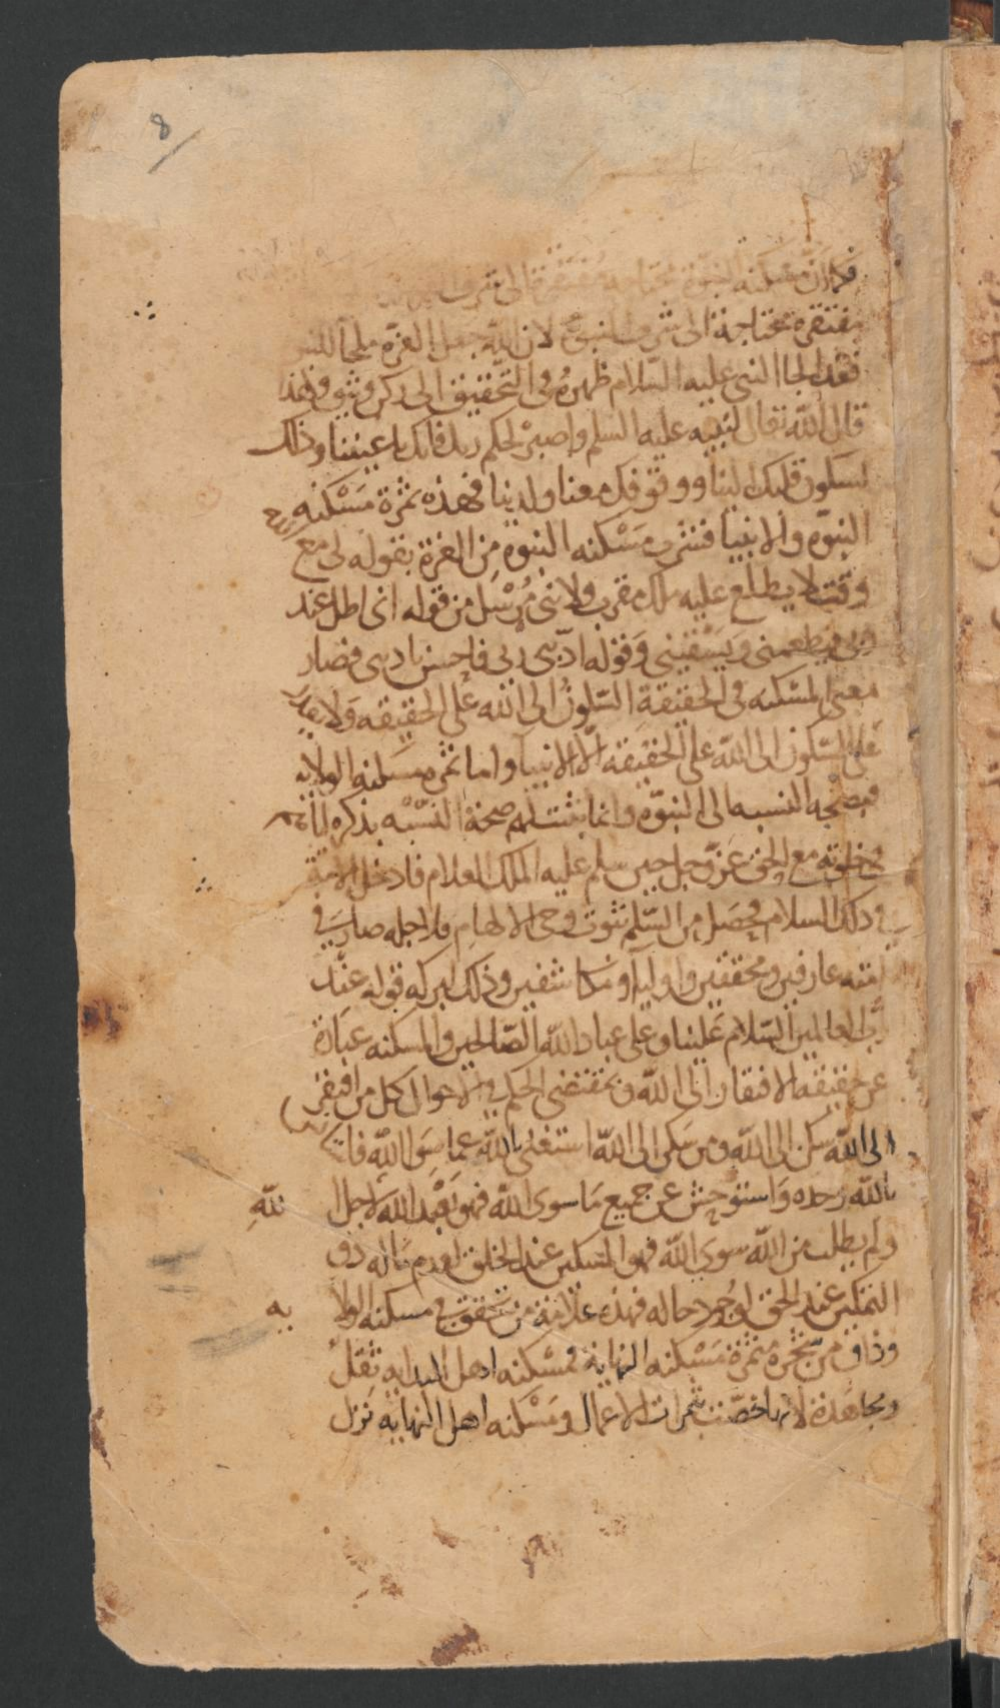 8
فكان مسكنة النبوة محتاجة مفتقرة الى شرف
مفتقرة محتاجة الى شرف النبى لان الله جعل العزة ملجأ للنبى
فقد الجا النبى عليه السلام ظهره فى التحقيق الى ركن وثيق ولهذا
قال الله تعالى لنبيه عليه السلم واصبر لحكم ربك فانك باعيننا وذلك
لسكون قلبك الينا ووقوفك معنا ولدينا فهذه ثمرة مسكنه
النبوه والانبيا فشرف مسكنه النبوه من العزة بقوله لى مع الله
وقت لا يطلع عليه ملك مقرب ولا نبى مرسل من قوله انى اظل عند
ربى فيطعمنى ويسقينى وقوله ادبنى ربى فاحسن تاديبى فصار
معنى المسكنه فى الحقيقة السكون الى الله على الحقيقه ولا يقدر
على السكون الى الله على الحقيقه الا الانبيا واما ثمره مسكنه الولايه
فبصحه النسبه الى النبوه وانما يثبت لهم صحة النسبه بذكره اياهم
فى خلوته مع الحق عز وجل حين سلم عليه الملك العلام فادخل الامة
فى ذلك السلام فحصل من السلم ثبوت وحى الالهام فلاجله صار فى
امته عارفين ومحققين واوليا ومكاشفين وذلك ببركه قوله عند
رب العالمين السلام علينا وعلى عباد الله الصالحين والمسكنه عبارة
عن حقيقه الافتقار الى الله بمقتضى الحكم فى الاحوال كل من افتقر
الى الله سكن الى الله ومن سكن الى الله استغنى بالله عما سوى الله فانس
بالله وحده واستوحش عن جميع ما سوى الله فهو يعبد الله لاجل الله
ولم يطلب من الله سوى الله فهو المسكين عند الخلق لعدم ماله ذو
التمكين عند الحق لوجود حاله فهذه علامة من تحقق فى مسكنه الولايه
وذاق من شجره ثمرة مسكنه النهاية فمسكنه اهل البدايه ثقل
ومجاهدة لانها خصت بثمرات الاعمال ومسكنه اهل النهايه نزل